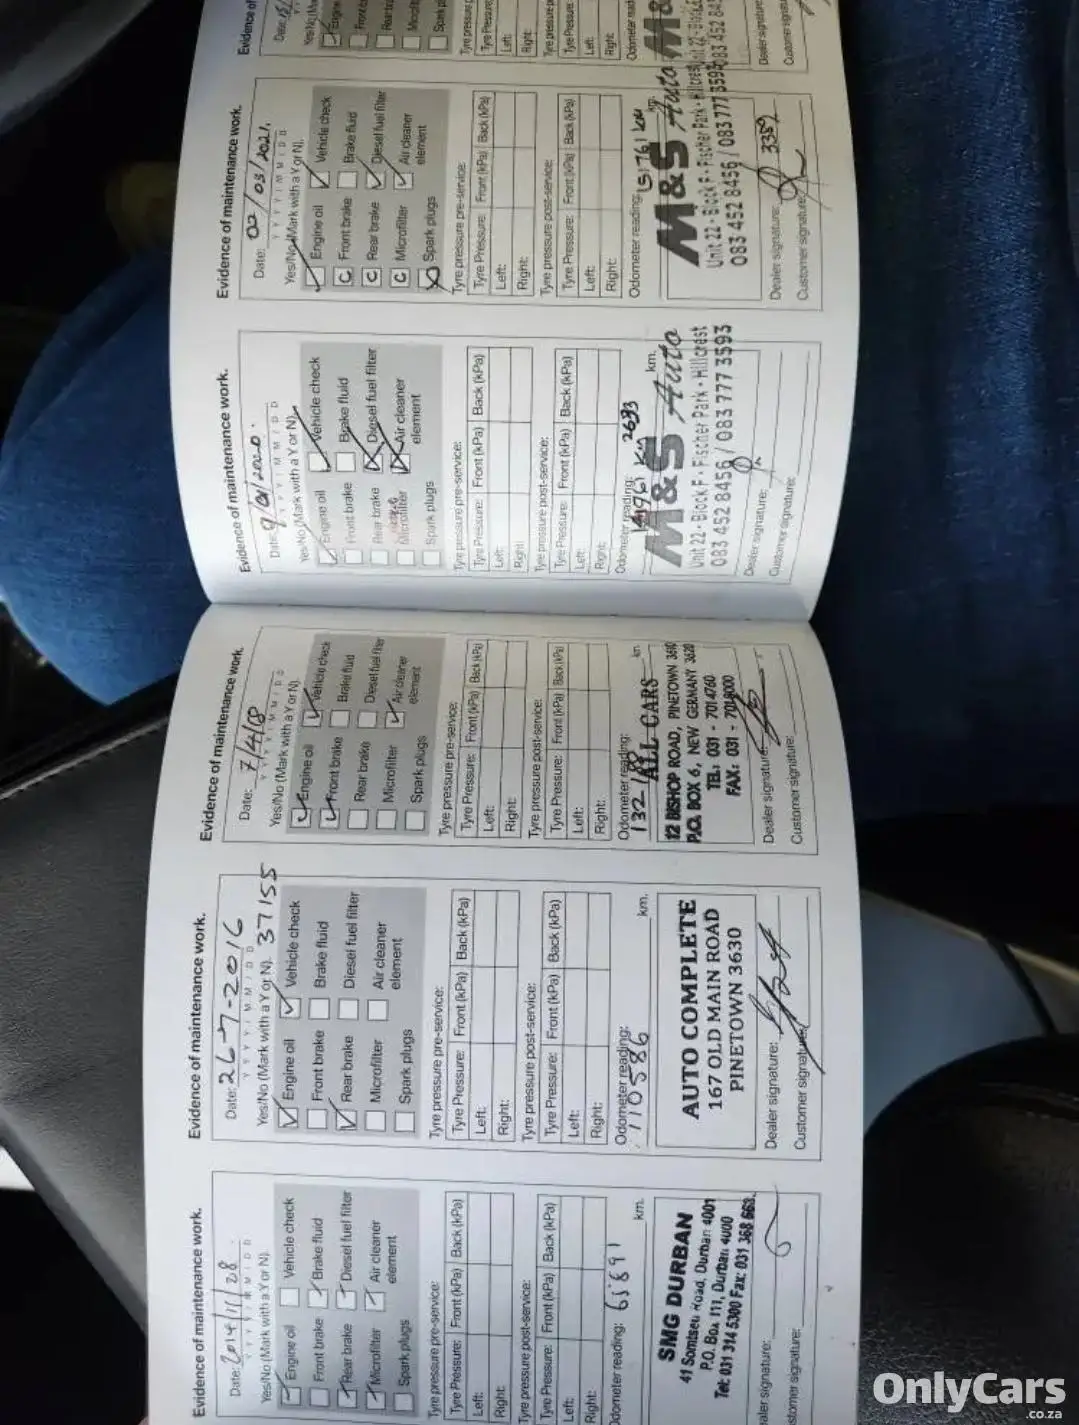 Evidence of maintenance work.
Date: 2014/11/28
Y Y Y Y / M M / D D
Yes/No (Mark with a Y or N).
Engine oil
Vehicle check
Front brake
Brake fluid
Rear brake
Diesel fuel filter
Microfilter
Air cleaner
element
Spark plugs
Tyre pressure pre-service:
Tyre Pressure: Front (kPa) Back (kPa)
Left:
Right:
Tyre pressure post-service:
Tyre Pressure: Front (kPa) Back (kPa)
Left:
Right:
Odometer reading: 65891 km.
SMG DURBAN
41 Somtseu Road, Durban 4001
P.O. Box 111, Durban 4000
Tel: 031 314 5300 Fax: 031 368 668
Dealer signature:
Customer signature:
Evidence of maintenance work.
Date: 26-7-2016
Y Y Y Y / M M / D D
Yes/No (Mark with a Y or N). 37155
Engine oil
Vehicle check
Front brake
Brake fluid
Rear brake
Diesel fuel filter
Microfilter
Air cleaner
element
Spark plugs
Tyre pressure pre-service:
Tyre Pressure: Front (kPa) Back (kPa)
Left:
Right:
Tyre pressure post-service:
Tyre Pressure: Front (kPa) Back (kPa)
Left:
Right:
Odometer reading:
110586 km.
AUTO COMPLETE
167 OLD MAIN ROAD
PINETOWN 3630
Dealer signature:
Customer signature:
Evidence of maintenance work.
Date: 7/4/18
Y Y Y Y / M M / D D
Yes/No (Mark with a Y or N).
Engine oil
Vehicle check
Front brake
Brake fluid
Rear brake
Diesel fuel filter
Microfilter
Air cleaner
element
Spark plugs
Tyre pressure pre-service:
Tyre Pressure: Front (kPa) Back (kPa)
Left:
Right:
Tyre pressure post-service:
Tyre Pressure: Front (kPa) Back (kPa)
Left:
Right:
Odometer reading:
km.
ALL CARS
12 BISHOP ROAD, PINETOWN 3610
P.O. BOX 6, NEW GERMANY 3620
TEL: 031 - 7014760
FAX: 031 - 7018000
Dealer signature:
Customer signature:
Evidence of maintenance work.
Date: 9/01/2020.
Y Y Y Y / M M / D D
Yes/No (Mark with a Y or N).
Engine oil
Vehicle check
Front brake
Brake fluid
Rear brake
Diesel fuel filter
Microfilter
Air cleaner
element
Spark plugs
Tyre pressure pre-service:
Tyre Pressure: Front (kPa) Back (kPa)
Left:
Right:
Tyre pressure post-service:
Tyre Pressure: Front (kPa) Back (kPa)
Left:
Right:
Odometer reading: 2693
km.
M&S Auto
Unit 22 • Block F • Fischer Park • Hillcrest
083 452 8456 / 083 777 3593
Dealer signature:
Customer signature:
Evidence of maintenance work.
Date: 02/03/2021.
Y Y Y Y / M M / D D
Yes/No (Mark with a Y or N).
Engine oil
Vehicle check
C Front brake
Brake fluid
C Rear brake
Diesel fuel filter
C Microfilter
Air cleaner
element
Spark plugs
Tyre pressure pre-service:
Tyre Pressure: Front (kPa) Back (kPa)
Left:
Right:
Tyre pressure post-service:
Tyre Pressure: Front (kPa) Back (kPa)
Left:
Right:
Odometer reading: 151761 km
M&S Auto
Unit 22 • Block F • Fischer Park • Hillcrest
083 452 8456 / 083 777 3593
Dealer signature: 3389
Customer signature:
Evidence of
Date:
Engine
Front b
Rear b
Microfil
Spark p
Tyre pressure p
Tyre Pressure
Left:
Right:
Tyre pressure po
Tyre Pressure:
Left:
Right:
Odometer read
M&S
083 452 845
Dealer signature
Customer signatu
OnlyCars
.co.za